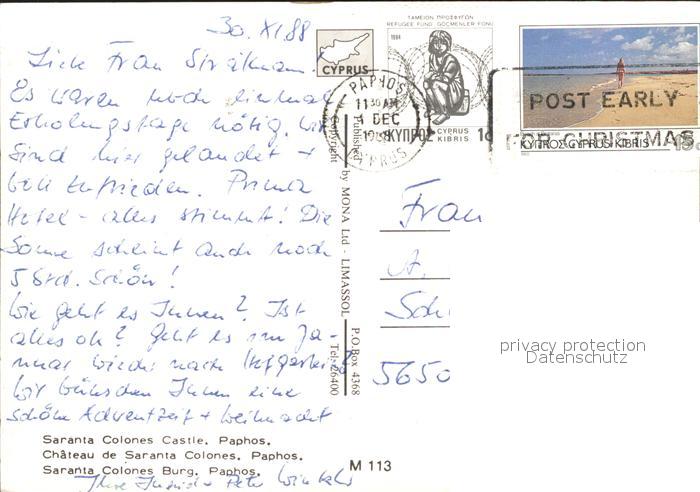 30. XI. 88
Liebe Frau
Es waren noch einmal
Erholungstage nötig. Wir
sind hier gelandet +
voll zufrieden. Prima
Hotel - alles stimmt! Die
Sonne scheint auch noch
5 Std. Schön!
Wie geht es Ihnen? Ist
alles ok? Geht es im Ja-
nuar wieder nach
Wir wünschen Ihnen eine
schöne Adventzeit + Weihnacht
Ihre Ingrid + Peter Winkler
Saranta Colones Castle, Paphos.
Château de Saranta Colones, Paphos.
Saranta Colones Burg, Paphos.
M 113
Copyright
Published by MONA Ltd - LIMASSOL
P.O.Box 4368
Tel. 26400
CYPRUS
ΤΑΜΕΙΟΝ ΠΡΟΣΦΥΓΩΝ
REFUGEE FUND GÖÇMENLER FONU
1984
ΚΥΠΡΟΣ CYPRUS KIBRIS 1c
PAPHOS
11 30 AM
1 DEC
1988
CYPRUS
POST EARLY
FOR CHRISTMAS
ΚΥΠΡΟΣ CYPRUS KIBRIS 15c
Frau
A.
Sch
5650
privacy protection
Datenschutz